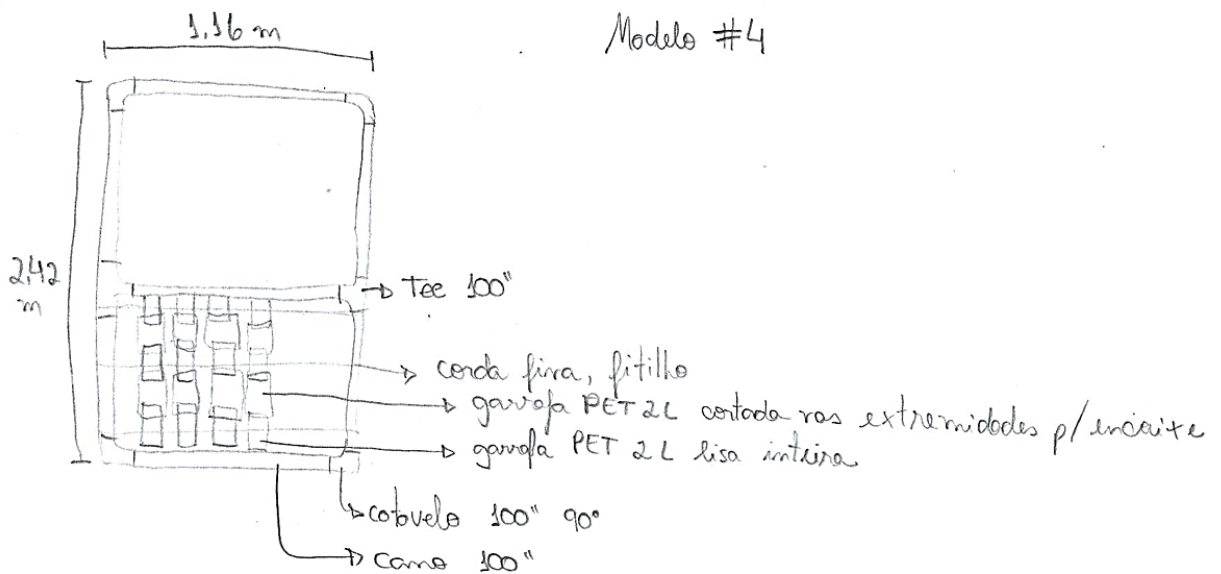 1,16 m
Modelo #4
2,42
m
Tee 100"
corda fina, fitilho
garrafa PET 2L cortada nas extremidades p/ encaixe
garrafa PET 2L lisa inteira
cotovelo 100" 90°
cano 100"